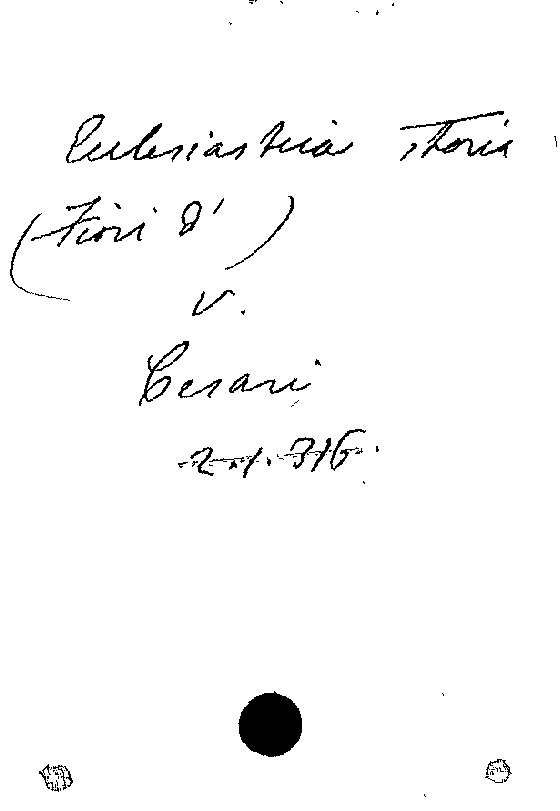 Ecclesiastica storia
(Fiori d')
V.
Cesari
2.1.316.